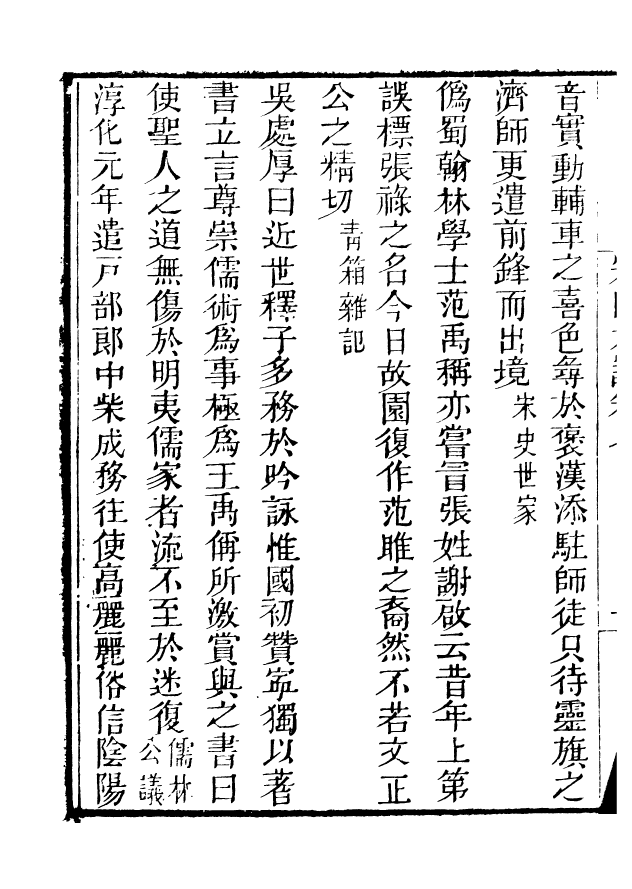 音實動輔車之喜色尋於褒漢添駐師徒只待靈旗之
濟師更遣前鋒而出境宋史世家
僞蜀翰林學士范禹稱亦嘗冒張姓謝啟云昔年上第
誤標張祿之名今日故園復作范雎之裔然不若文正
公之精切青箱雜記
吳處厚曰近世釋子多務於吟詠惟國初贊寧獨以著
書立言尊崇儒術爲事極爲王禹偁所激賞與之書曰
使聖人之道無傷於明夷儒家者流不至於迷復儒林公議
淳化元年遣戸部郎中柴成務往使高麗麗俗信陰陽